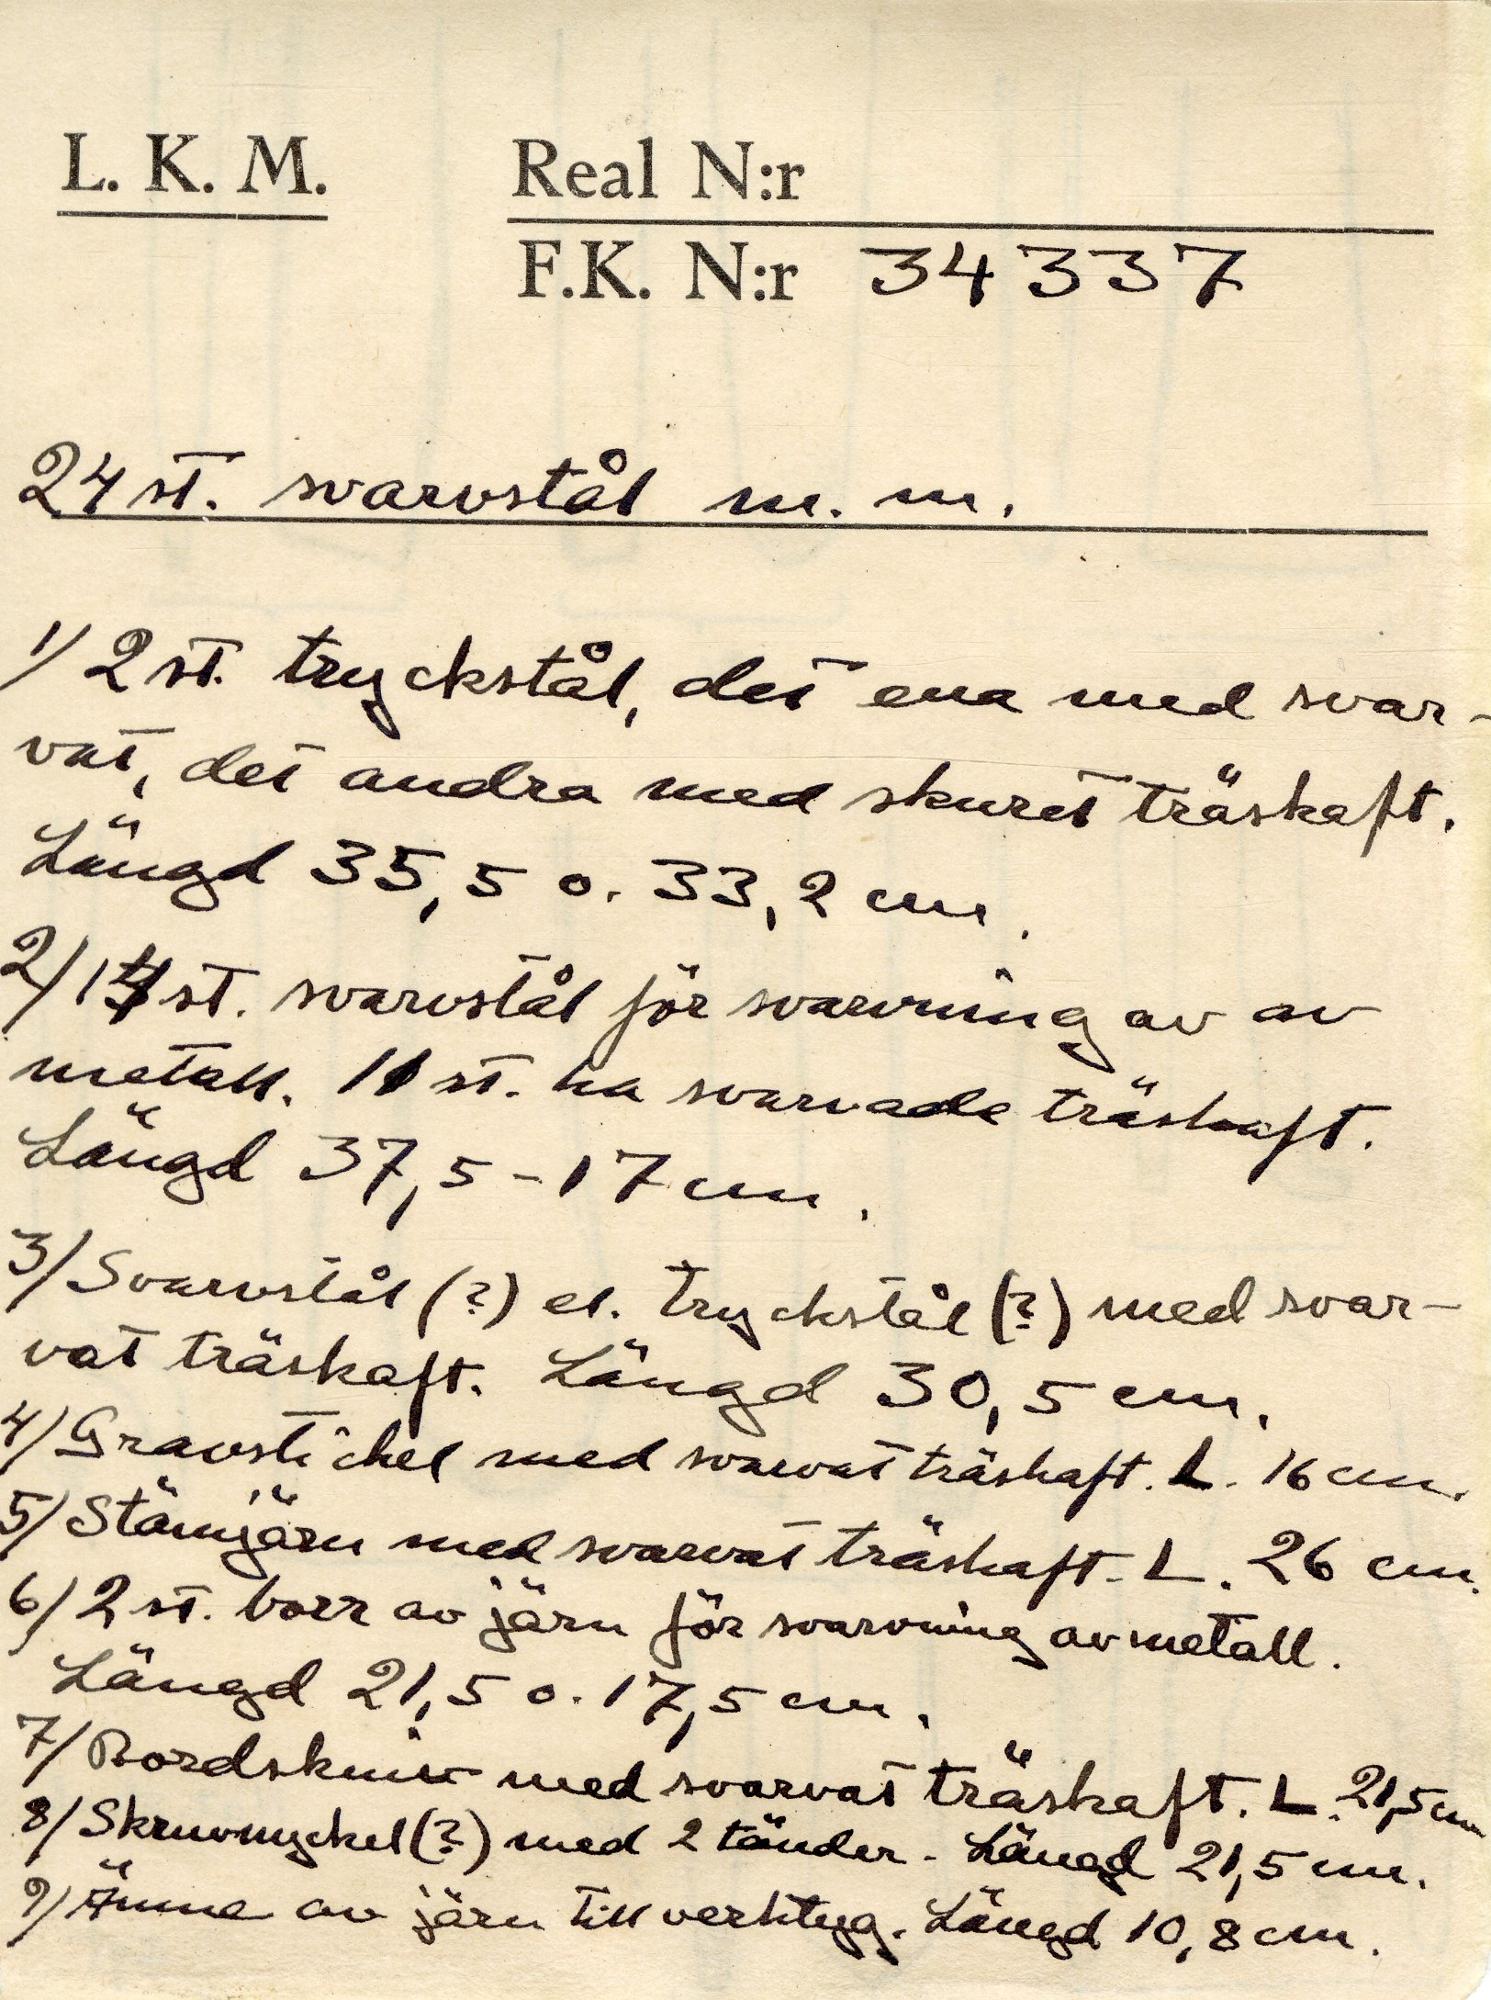 L. K. M. Real N:r
F.K. N:r 34337
24 st. svarvstål m. m.
1/ 2 st. tryckstål, det ena med svar-
vat, det andra med skuret träskaft.
Längd 35,5 o. 33,2 cm.
2/ 14 st. svarvstål för svarvning av av
metall. 11 st. ha svarvade träskaft.
Längd 37,5 - 17 cm.
3/ Svarvstål (?) el. tryckstål (?) med svar-
vat träskaft. Längd 30,5 cm.
4/ Gravstichel med svarvat träskaft. L. 16 cm.
5/ Stämjärn med svarvat träskaft. L. 26 cm.
6/ 2 st. borr av järn för svarvning av metall.
Längd 21,5 o. 17,5 cm.
7/ Bordskniv med svarvat träskaft. L. 21,5 cm
8/ Skruvnyckel (?) med 2 tänder. Längd 21,5 cm.
9/ Ämne av järn till verktyg. Längd 10,8 cm.